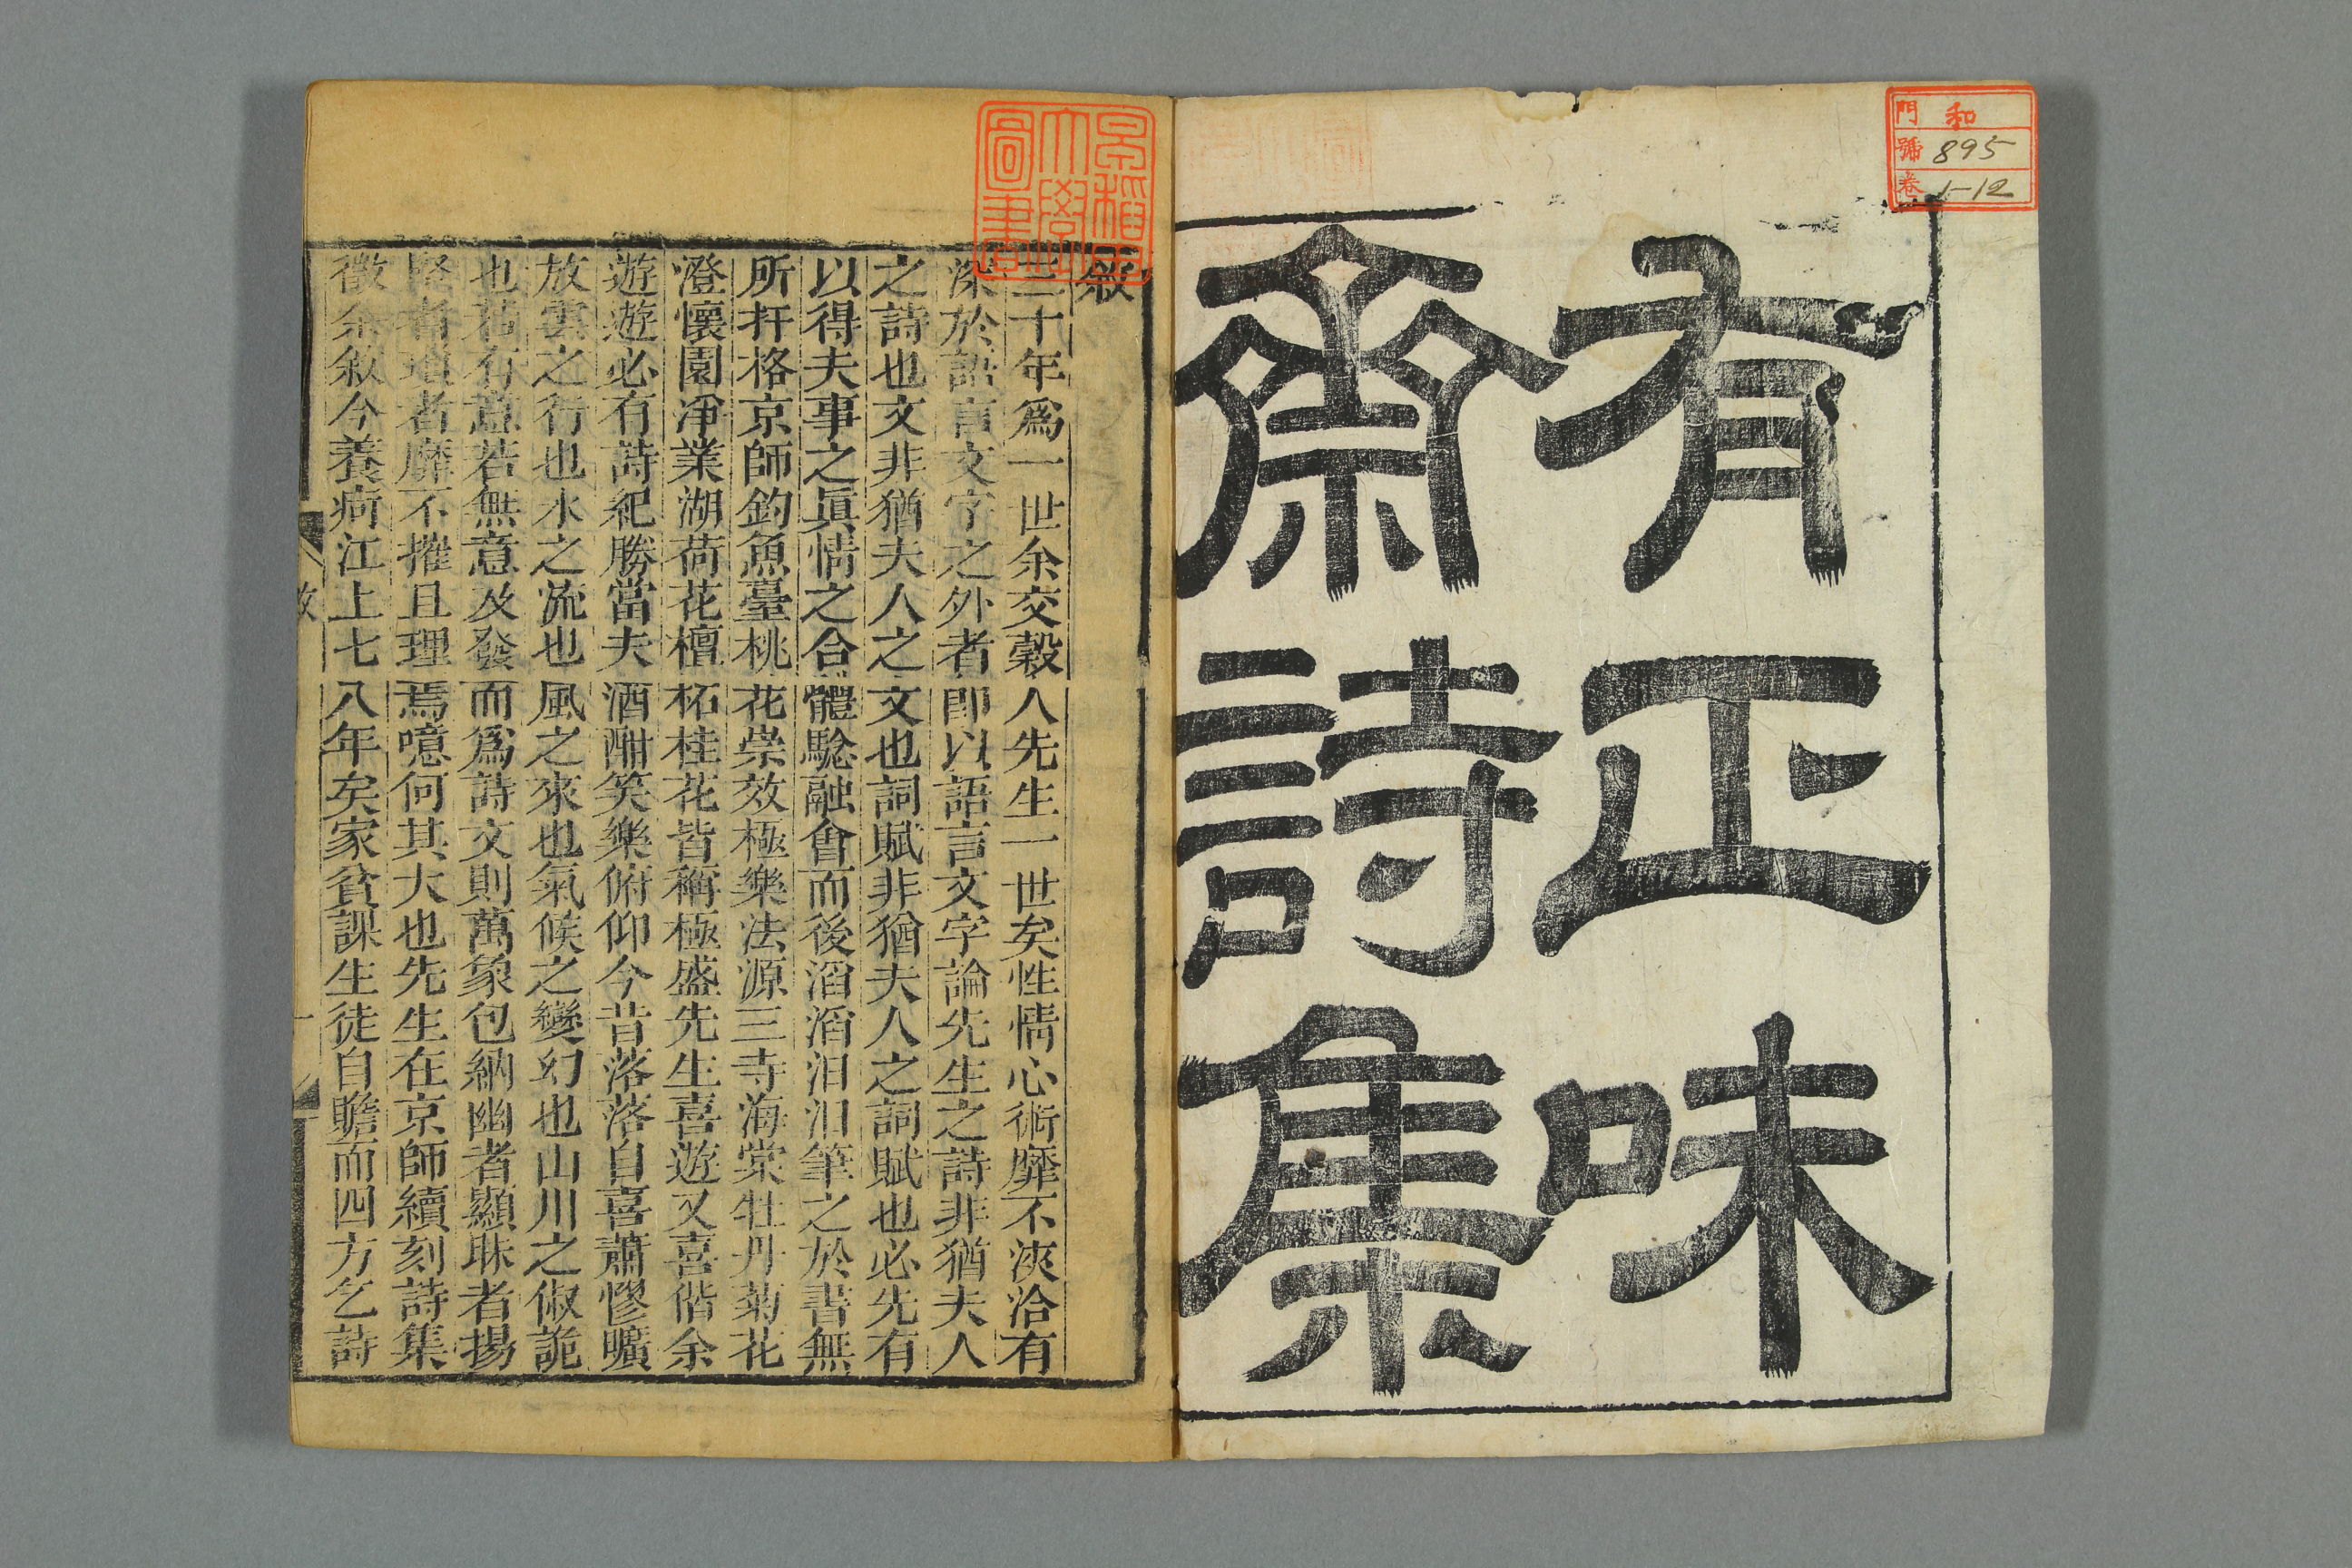 和
門
895
號
1-12
卷
有正味
齋詩集
早稻田
大學
圖書
敘
三十年爲一世余交穀人先生一世矣性情心術靡不浹洽有
深於語言文字之外者即以語言文字論先生之詩非猶夫人
之詩也文非猶夫人之文也詞賦非猶夫人之詞賦也必先有
以得夫事之眞情之合體驗融會而後滔滔汨汨筆之於書無
所扞格京師釣魚臺桃花崇效極樂法源三寺海棠牡丹菊花
澄懷園淨業湖荷花檀柘桂花皆稱極盛先生喜遊又喜偕余
遊遊必有詩紀勝當夫酒酣笑樂俯仰今昔落落自喜蕭慘曠
放雲之行也水之流也風之來也氣候之變幻也山川之俶詭
也若有意若無意及發而爲詩文則萬象包納幽者顯昧者揚
堅者遒者靡不摧且理焉噫何其大也先生在京師續刻詩集
徵余敘今養疴江上七八年矣家貧課生徒自贍而四方乞詩
敘
一